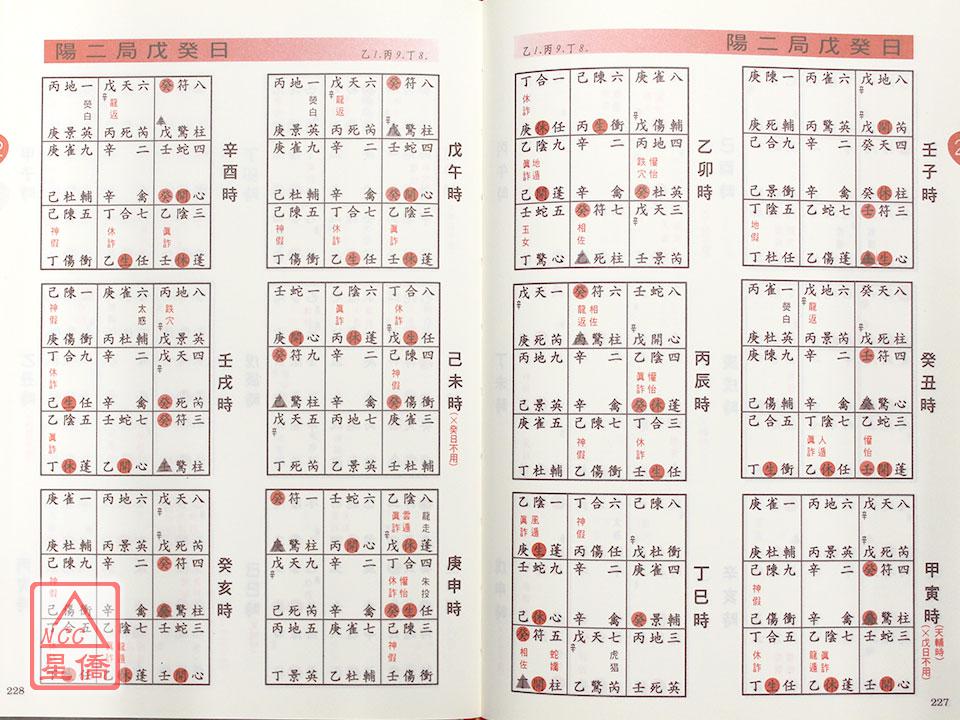 陽二局戊癸日
乙1.丙9.丁8.
壬子時
庚陳一 丙雀六 戊地八
辛
庚死輔 丙驚英 戊開芮
九 辛二 癸天四
己景衝 辛禽 癸休柱
丁陰五 乙蛇七 壬符三
地假
丁杜任 乙傷蓬 心
癸丑時
丙雀一 戊地六 癸天八
熒白 龍返
庚陳九 辛二 壬符四
己傷輔 辛禽
庚雀五 丁陰七 乙蛇三
真詐 人遁 權怡
丁生衝 乙休任 壬開蓬
甲寅時(天輔時)(×戊日不用)
庚雀一 丙地六 戊天八
辛
庚杜輔 丙景英 戊死芮
己陳九 辛二 癸符四
神假
己傷衝 辛禽 驚柱
丁合五 乙陰七 壬蛇三
休詐 龍遁 真詐
丁生任 乙休蓬 壬開心
乙卯時
丁合一 己陳六 庚雀八
休詐
庚休任 丙生衝 戊傷輔
乙陰九 辛二 丙地四
真詐 地遁 跌穴 權怡
己開蓬 辛禽 癸杜英
壬蛇五 癸符七 戊天三
玉女 相佐
丁驚心 乙死柱 壬景芮
丙辰時
戊天一 癸符六 壬蛇八
辛 龍返 相佐
驚柱 戊開心
丙地九 辛二 乙陰四
真詐 權怡
己景英 辛禽 癸休蓬
庚雀五 己陳七 丁合三
神假 休詐
丁杜輔 乙傷衝 壬生任
丁巳時
乙陰一 丁合六 己陳八
真詐 風遁 神假
庚生蓬 丙傷任 戊杜衝
壬蛇九 辛二 庚雀四
己休心 辛禽 癸景輔
癸符五 戊天七 丙地三
相佐 蛇嬌 辛 虎猖
開柱 乙驚芮 壬死英
227
陽二局戊癸日
乙1.丙9.丁8.
戊午時
丙地一 戊天六 癸符八
熒白 辛 龍返
庚景英 丙死芮 驚柱
庚雀九 辛二 壬蛇四
己杜輔 辛禽 癸開心
己陳五 丁合七 乙陰三
神假 休詐 真詐
丁傷衝 乙生任 壬休蓬
己未時(×癸日不用)
壬蛇一 乙陰六 丁合八
真詐 休詐
庚開心 丙休蓬 戊生任
癸符九 辛二 己陳四
神假
驚柱 辛禽 癸傷衝
戊天五 丙地七 庚雀三
辛
丁死芮 乙景英 壬杜輔
庚申時
癸符一 壬蛇六 乙陰八
真詐 雲遁 龍走
驚柱 丙開心 戊休蓬
戊天九 辛二 丁合四
辛 休詐 權怡 朱投
己死芮 辛禽 癸生任
丙地五 庚雀七 己陳三
神假
丁景英 乙杜輔 壬傷衝
辛酉時
丙地一 戊天六 癸符八
熒白 辛 龍返
庚景英 丙死芮 戊驚柱
庚雀九 辛二 壬蛇四
己杜輔 辛禽 癸開心
己陳五 丁合七 乙陰三
神假 休詐 真詐
丁傷衝 乙生任 壬休蓬
壬戌時
己陳一 庚雀六 丙地八
神假 太惑 跌穴
庚傷衝 丙杜輔 戊景英
丁合九 辛二 戊天四
休詐 辛
己生任 辛禽 癸死芮
乙陰五 壬蛇七 癸符三
真詐
丁休蓬 乙開心 驚柱
癸亥時
庚雀一 丙地六 戊天八
辛
庚杜輔 丙景英 戊死芮
己陳九 辛二 癸符四
神假
傷衝 辛禽 驚柱
合五 乙陰七 壬蛇三
龍遁 真詐
任 乙休蓬 壬開心
228
NCC
星僑